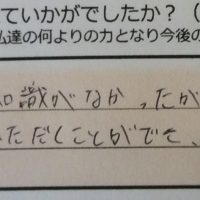 ていかがでしたか？（
私達の何よりの力となり今後の
知識がなかったが
ただくことができ、